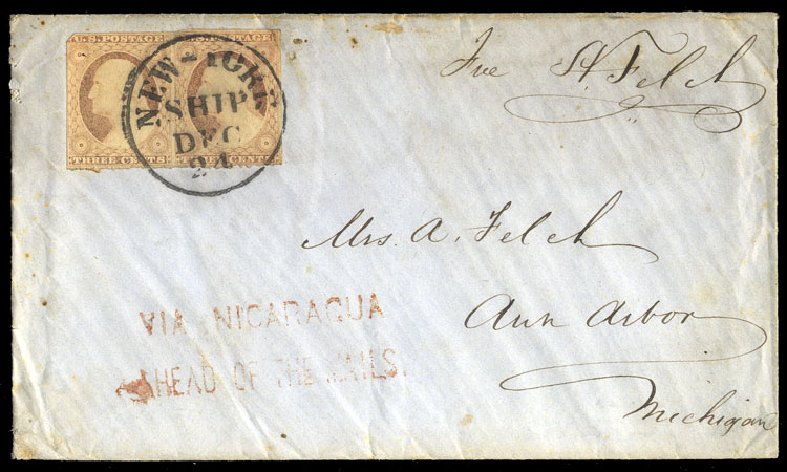 U.S. POSTAGE U.S. POSTAGE
THREE CENTS THREE CENTS
NEW-YORK
SHIP
DEC
24
H. Felch
Mrs. A. Felch
Ann Arbor
Michigan
VIA NICARAGUA
AHEAD OF THE MAILS.